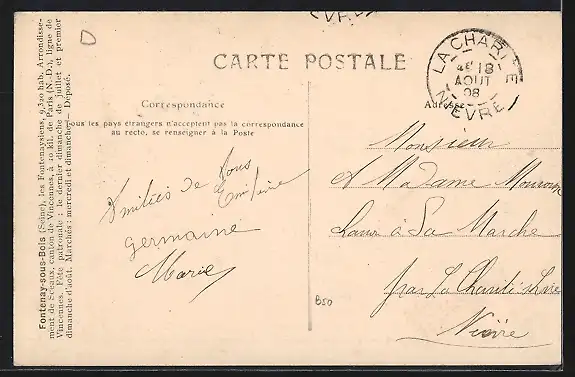 Fontenay-sous-Bois (Seine), les Fontenaysiens, 9.320 hab. Arrondisse-
ment de Sceaux, canton de Vincennes, à 10 kil. de Paris (N.-D.), ligne de
Vincennes. Fête patronale : le dernier dimanche de juillet et premier
dimanche d'août. Marchés : mercredi et dimanche. — Déposé.
D
CARTE POSTALE
LA CHARITÉ
18
AOUT
08
NIEVRE
Correspondance
Tous les pays étrangers n'acceptent pas la correspondance
au recto, se renseigner à la Poste
Adresse
Amitiés de tous
germaine
Marie
B50
Monsieur
et Madame
à La Marche
par La Charité
Nièvre